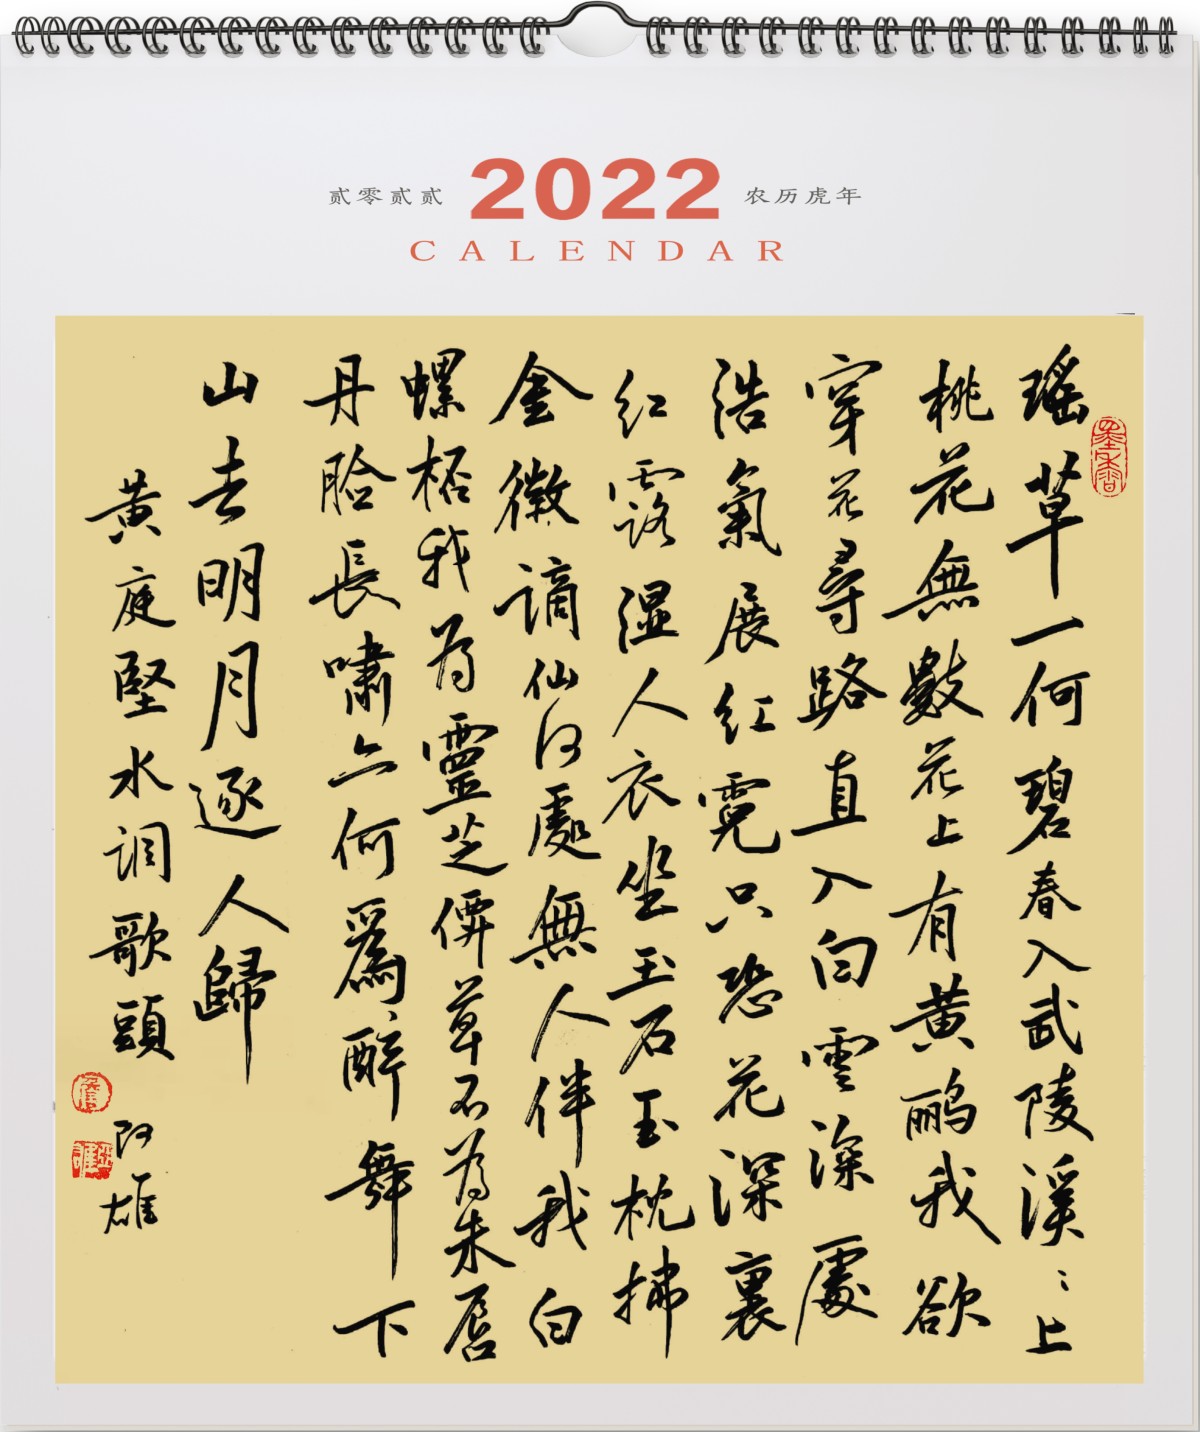 贰零贰贰 2022 农历虎年
CALENDAR
瑶草一何碧春入武陵溪〻上
桃花無數花上有黄鹂我欲
穿花尋路直入白雲深處
浩氣展紅霓只恐花深裏
红露湿人衣坐玉石玉枕拂
金徽謫仙何處無人伴我白
螺桮我为靈芝僊草不为朱唇
丹臉長嘯亦何爲醉舞下
山去明月逐人歸
黄庭堅水调歌頭
阿雄
墨香